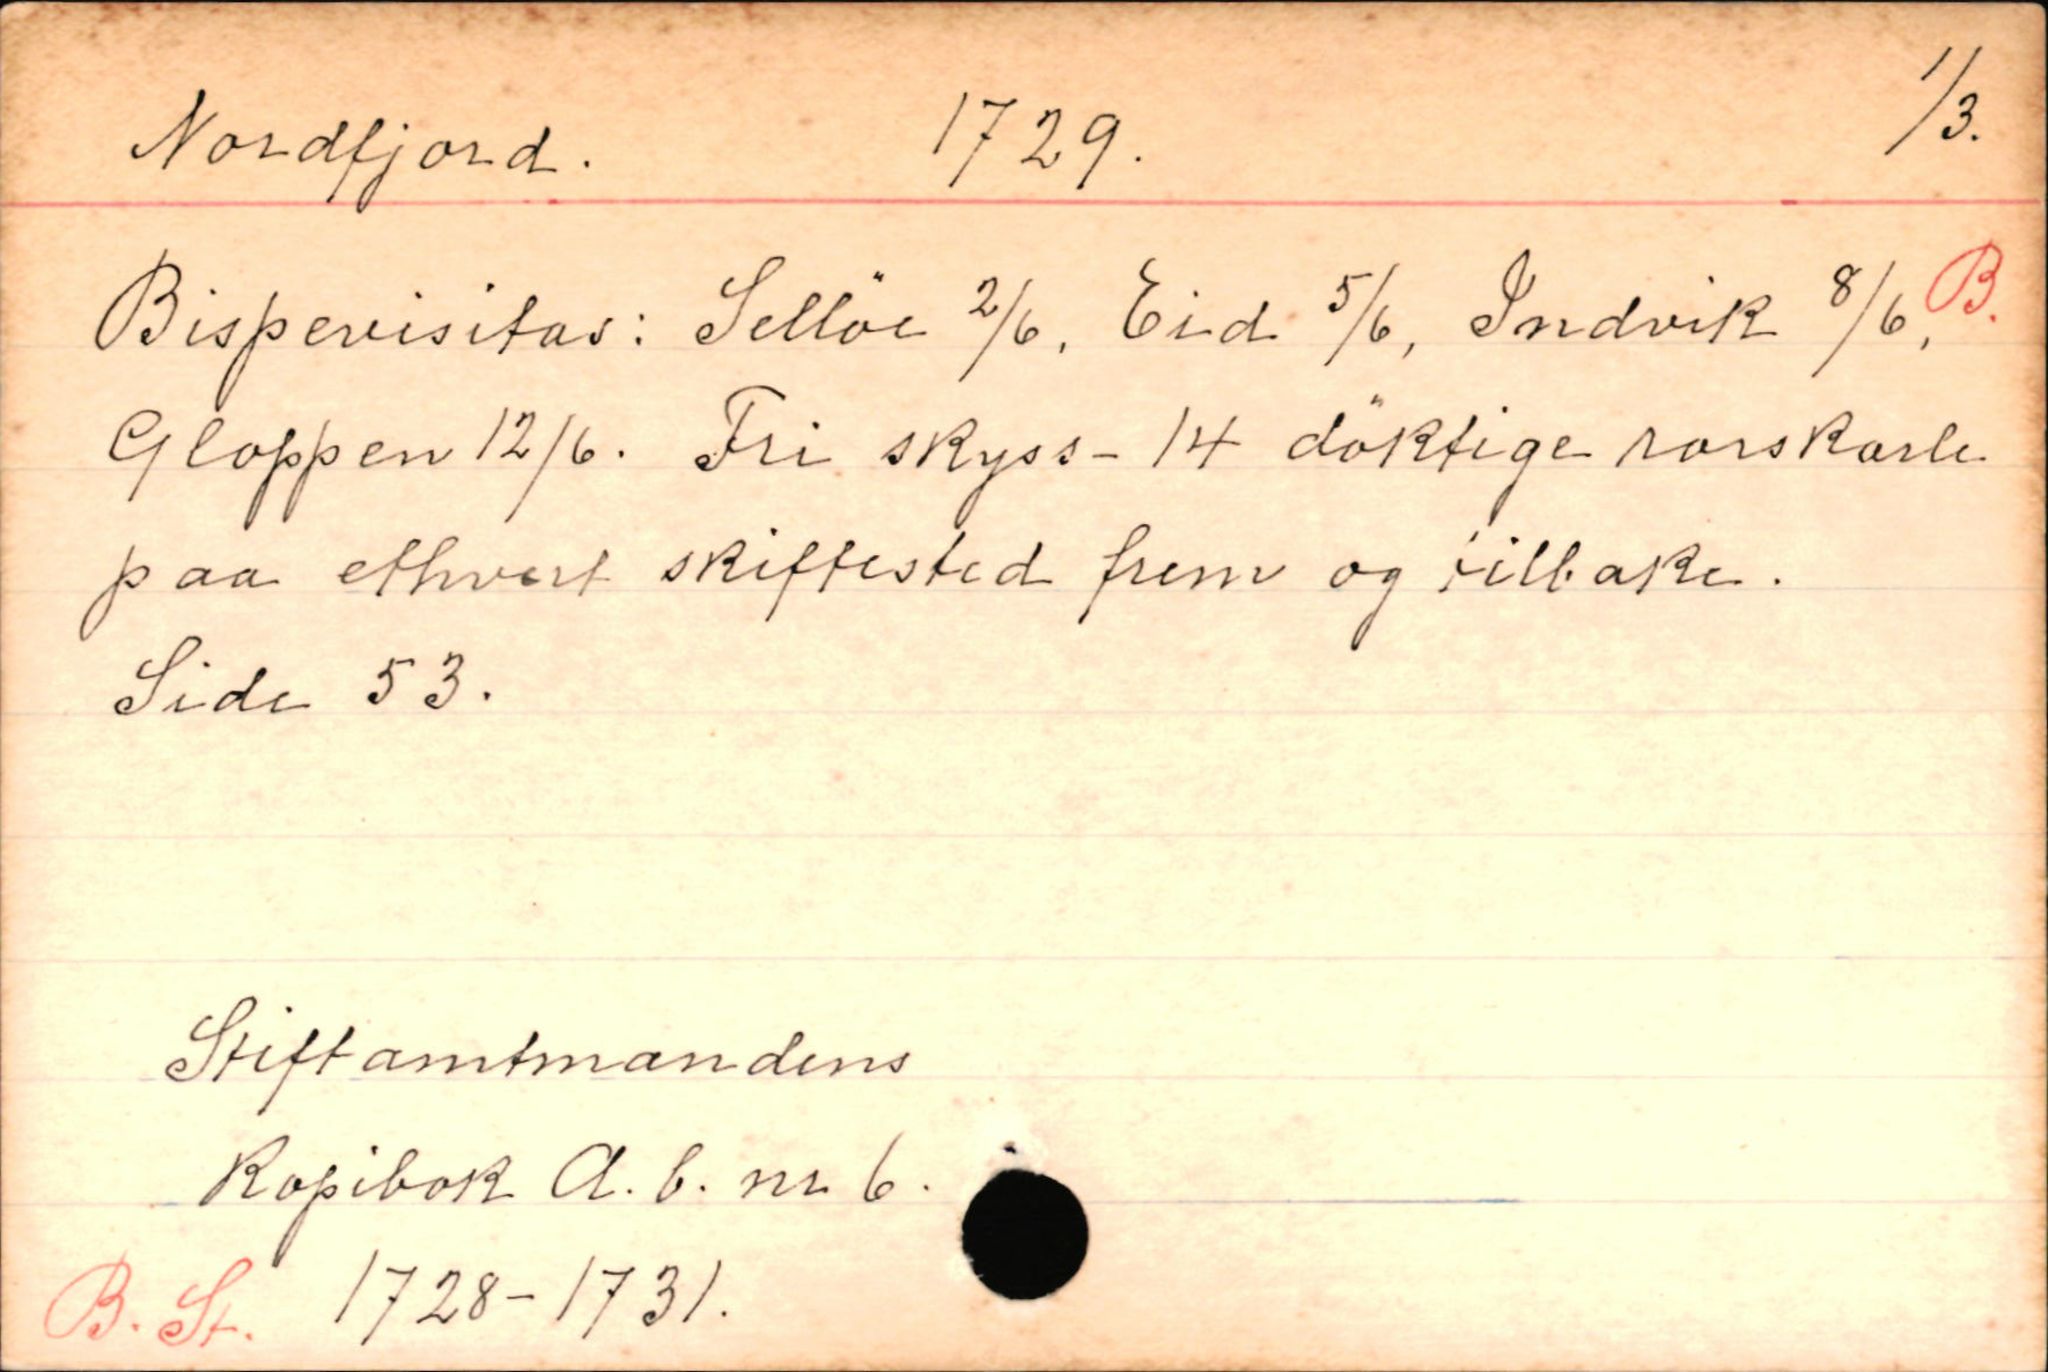 Nordfjord. 1729. 1/3.
Bispevisitas: Sellöe 2/6, Eid 5/6, Indvik 8/6, B.
Gloppen 12/6. Fri skyss - 14 döktige rorskarle
paa ethvert skiftested frem og tilbake.
Side 53.
Stiftamtmandens
Kopibok A. b. nr 6.
B. St. 1728-1731.